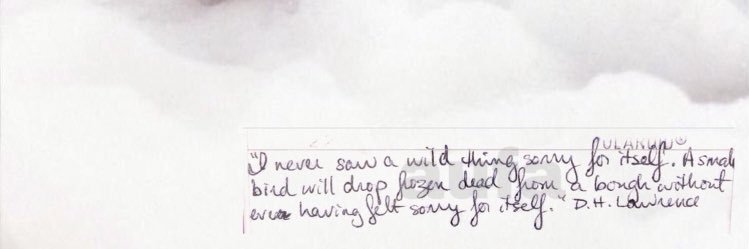 "I never saw a wild thing sorry for itself. A small
bird will drop frozen dead from a bough without
ever having felt sorry for itself." D.H. Lawrence